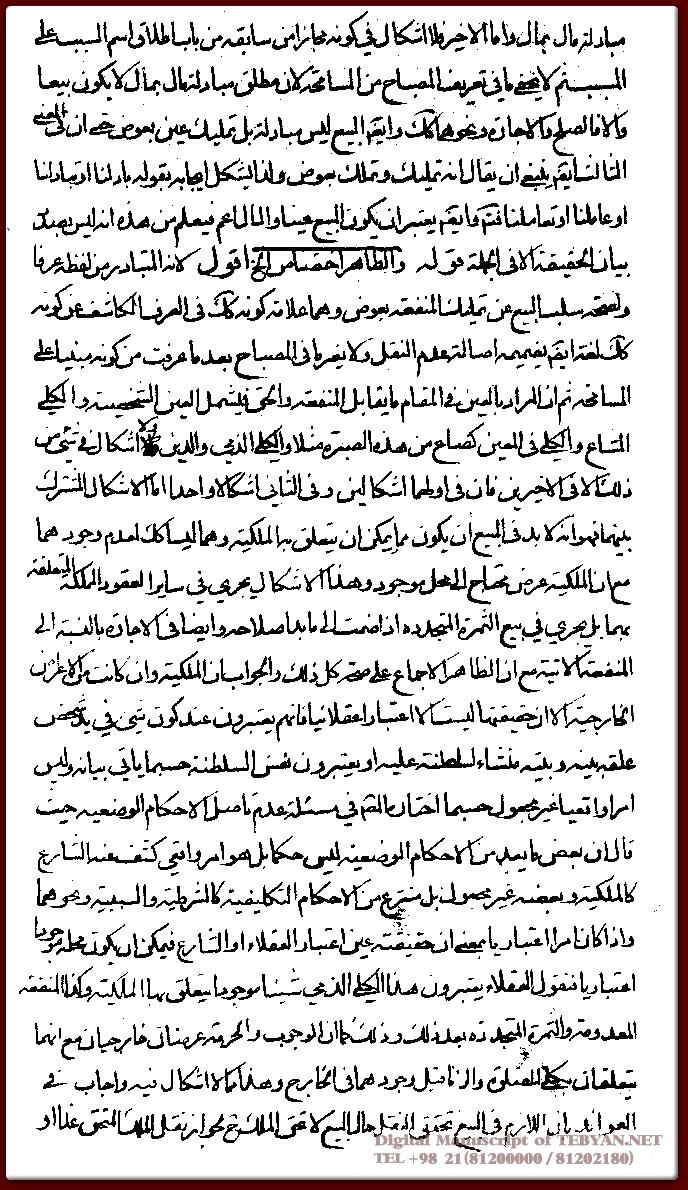 مبادلة مال بمال واما الاخير فلا اشكال في كونه مجازا من سابقه من باب اطلاق اسم السبب على
المسبب ثم لا يخفى ما في تعريف المصباح من المسامحة لان مطلق مبادلة مال بمال لا يكون بيعا
والا فالصلح والاجارة ونحوهما كك وايضم البيع ليس مبادلة بل تمليك عين بعوض حتى ان في المعنى
الثالث ايضم ينبغي ان يقال انه تمليك وتملك بعوض ولذا يشكل ايجابه بقوله بادلنا او تبادلنا
او عاملنا او تعاملنا فتم وايضم يعتبر ان يكون المبيع عينا والمال اعم فيعلم من هذه انه ليس بصدد
بيان الحقيقة الا في الجملة قوله والظاهر اختصاص الخ اقول لانه المتبادر من لفظه عرفا
ولصحة سلب البيع عن تمليك المنفعة بعوض وهما علامة كونه كك في العرف الكاشف عن كونه
كك لغة ايضم بضميمة اصالة عدم النقل ولا يضر ما في المصباح بعد ما عرفت من كونه مبنيا على
المسامحة ثم ان المراد بالعين في المقام ما يقابل المنفعة والحق فيشمل العين الشخصية والكلي
المشاع والكلي في المعين كصاع من هذه الصبرة مثلا والكلي الذمي والدين ولا اشكال في شئ من
ذلك الا في الاخيرين فان في اولهما اشكالين وفي الثاني اشكالا واحدا اما الاشكال المشترك
بينهما فهو انه لا بد في المبيع ان يكون مما يمكن ان يتعلق به الملكية وهما ليسا كك لعدم وجودهما
مع ان الملكية عرض محتاج الى محل موجود وهذا الاشكال يجري في ساير العقود المملكة المتعلقة
بهما بل يجري في بيع الثمرة المتجددة اذا ضمت الى ما بدا صلاحه وايضا في الاجارة بالنسبة الى
المنفعة الاتية مع ان الظاهر الاجماع على صحة كل ذلك والجواب ان الملكية وان كانت من الاعراض
الخارجية الا ان حقيقتها ليست الا اعتبارا عقلائيا فانهم يعتبرون عند كون شئ في يد شخص
علقة بينه وبينه منشاء لسلطنته عليه او يعتبرون نفس السلطنة حسبما ياتي بيانه وليس
امرا واقعيا غير مجعول حسبما اختاره المص في مسئلة عدم تاصل الاحكام الوضعية حيث
قال ان بعض ما يعد من الاحكام الوضعية ليس حكما بل هو امر واقعي كشف عنه الشارع
كالملكية وبعضه غير مجعول بل منتزع من الاحكام التكليفية كالشرطية والسببية ونحوهما
واذا كان امرا اعتباريا بمعنى ان حقيقته عين اعتبار العقلاء او الشارع فيمكن ان يكون محله موجودا
اعتباريا فنقول العقلاء يعتبرون هذا الكلي الذمي شيئا موجودا يتعلق به الملكية وكذا المنفعة
المعدومة والثمرة المتجددة بعد ذلك وذلك كما ان الوجوب والحرمة عرضان خارجيان مع انهما
يتعلقان بكلي الصلوة والزنا قبل وجودهما في الخارج وهذا مما لا اشكال فيه واجاب في
العوائد بان اللازم في البيع تحقق النقل حال البيع لا تحقق الملك فح يجوز نقل الملك المتحقق غدا او
Digital Manuscript of TEBYAN.NET
TEL +98 21(81200000 / 81202180)